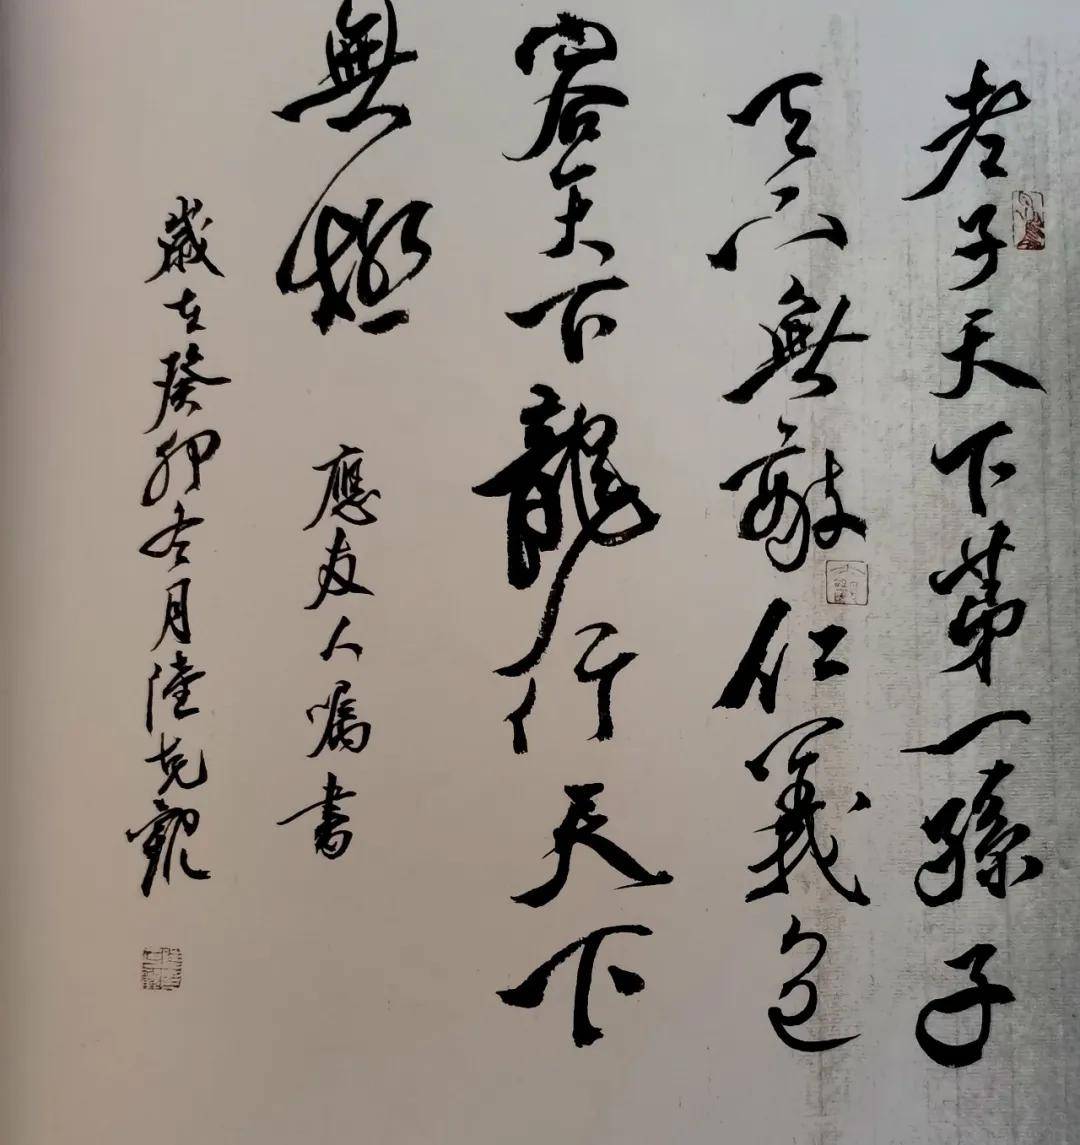 老子天下第一孫子
天下無敵仁義包
容天下龍行天下
無極
應友人嘱書
歲在癸卯冬月陸克觀